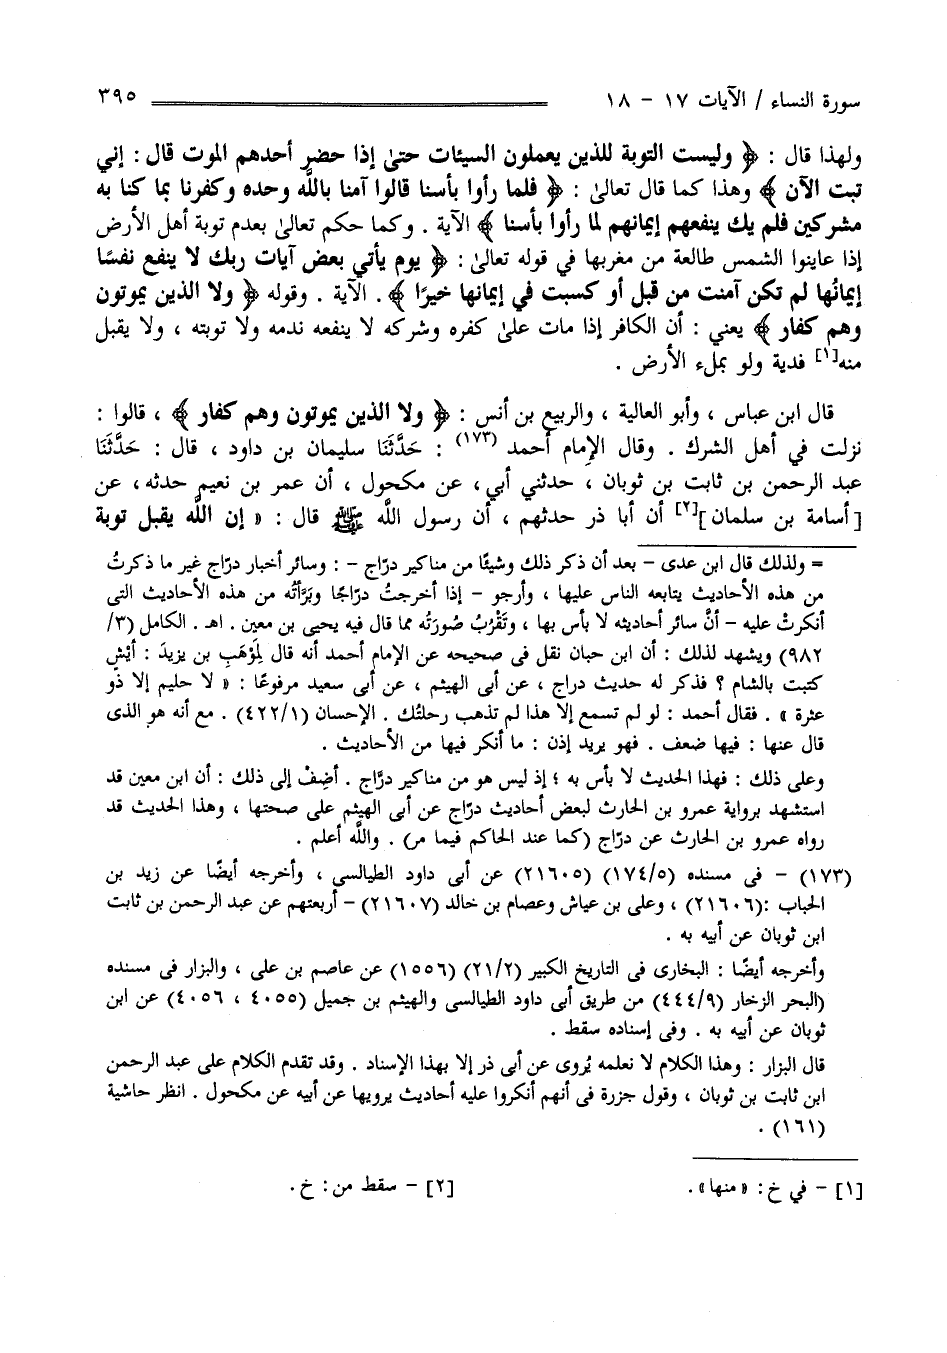 سورة النساء / الآيات ١٧ - ١٨ ٣٩٥
ولهذا قال : ﴿ وليست التوبة للذين يعملون السيئات حتىٰ إذا حضر أحدهم الموت قال : إني
تبت الآن ﴾ وهذا كما قال تعالىٰ : ﴿ فلما رأوا بأسنا قالوا آمنا باللَّه وحده وكفرنا بما كنا به
مشركين فلم يك ينفعهم إيمانهم لما رأوا بأسنا ﴾ الآية . وكما حكم تعالىٰ بعدم توبة أهل الأرض
إذا عاينوا الشمس طالعة من مغربها في قوله تعالىٰ : ﴿ يوم يأتي بعض آيات ربك لا ينفع نفسًا
إيمانُها لم تكن آمنت من قبل أو كسبت في إيمانها خيرًا ﴾ . الآية . وقوله ﴿ ولا الذين يموتون
وهم كفار ﴾ يعني : أن الكافر إذا مات علىٰ كفره وشركه لا ينفعه ندمه ولا توبته ، ولا يقبل
منه[١] فدية ولو بملء الأرض .
قال ابن عباس ، وأبو العالية ، والربيع بن أنس : ﴿ ولا الذين يموتون وهم كفار ﴾ ، قالوا :
نزلت في أهل الشرك . وقال الإمام أحمد (١٧٣) : حَدَّثَنَا سليمان بن داود ، قال : حَدَّثَنَا
عبد الرحمن بن ثابت بن ثوبان ، حدثني أبي ، عن مكحول ، أن عمر بن نعيم حدثه ، عن
[أسامة بن سلمان][٢] أن أبا ذر حدثهم ، أن رسول اللَّه ﷺ قال : « إن اللَّه يقبل توبة
= ولذلك قال ابن عدى - بعد أن ذكر ذلك وشيئًا من مناكير دراج - : وسائر أخبار درّاج غير ما ذكرتُ
من هذه الأحاديث يتابعه الناس عليها ، وأرجو - إذا أخرجتُ درّاجًا وبَرَّأتُه من هذه الأحاديث التى
أنكرتْ عليه - أنَّ سائر أحاديثه لا بأس بها ، وتَقْرُبُ صُورَتُه مما قال فيه يحيى بن معين . اهـ . الكامل (٣/
٩٨٢) ويشهد لذلك : أن ابن حبان نقل فى صحيحه عن الإمام أحمد أنه قال لِمَوْهَبِ بن يزيدَ : أيْشٍ
كتبت بالشام ؟ فذكر له حديث دراج ، عن أبى الهيثم ، عن أبى سعيد مرفوعًا : « لا حليم إلا ذو
عثرة » . فقال أحمد : لو لم تسمع إلا هذا لم تذهب رحلتُك . الإحسان (٤٢٢/١) . مع أنه هو الذى
قال عنها : فيها ضعف . فهو يريد إذن : ما أنكر فيها من الأحاديث .
وعلى ذلك : فهذا الحديث لا بأس به ؛ إذ ليس هو من مناكير درّاج . أضِفْ إلى ذلك : أن ابن معين قد
استشهد برواية عمرو بن الحارث لبعض أحاديث درّاج عن أبى الهيثم على صحتها ، وهذا الحديث قد
رواه عمرو بن الحارث عن درّاج (كما عند الحاكم فيما مر) . واللَّه أعلم .
(١٧٣) - فى مسنده (١٧٤/٥) (٢١٦٠٥) عن أبى داود الطيالسى ، وأخرجه أيضًا عن زيد بن
الحباب :(٢١٦٠٦) ، وعلى بن عياش وعصام بن خالد (٢١٦٠٧) - أربعتهم عن عبد الرحمن بن ثابت
ابن ثوبان عن أبيه به .
وأخرجه أيضًا : البخارى فى التاريخ الكبير (٢١/٢) (١٥٥٦) عن عاصم بن على ، والبزار فى مسنده
(البحر الزخار (٤٤٤/٩) من طريق أبى داود الطيالسى والهيثم بن جميل (٤٠٥٥ ، ٤٠٥٦) عن ابن
ثوبان عن أبيه به . وفى إسناده سقط .
قال البزار : وهذا الكلام لا نعلمه يُروى عن أبى ذر إلا بهذا الإسناد . وقد تقدم الكلام على عبد الرحمن
ابن ثابت بن ثوبان ، وقول جزرة فى أنهم أنكروا عليه أحاديث يرويها عن أبيه عن مكحول . انظر حاشية
(١٦١) .
[١] - في خ: «منها». [٢] - سقط من: خ.